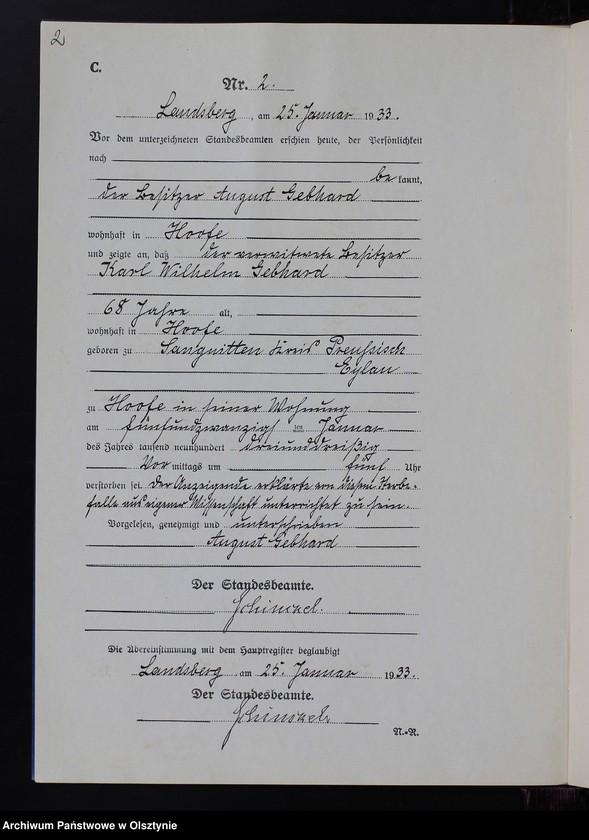 2
C.
Nr. 2.
Landsberg, am 25. Januar 1933.
Vor dem unterzeichneten Standesbeamten erschien heute, der Persönlichkeit
nach
be kannt,
der Besitzer August Gebhard
wohnhaft in Hoofe
und zeigte an, daß der verwitwete Besitzer
Karl Wilhelm Gebhard
68 Jahre alt,
wohnhaft in Hoofe
geboren zu Sangnitten Kreis Preußisch
Eylau
zu Hoofe in seiner Wohnung
am fünfundzwanzigsten Januar
des Jahres tausend neunhundert dreiunddreißig
Vor mittags um fünf Uhr
verstorben sei. Der Anzeigende erklärte von diesem Sterbe-
falle aus eigener Wissenschaft unterrichtet zu sein.
Vorgelesen, genehmigt und unterschrieben
August Gebhard
Der Standesbeamte.
Die Übereinstimmung mit dem Hauptregister beglaubigt
Landsberg, am 25. Januar 1933.
Der Standesbeamte.
N.-R.
Archiwum Państwowe w Olsztynie